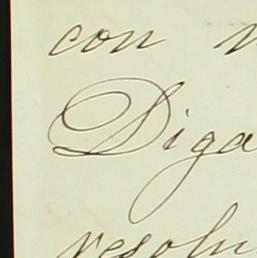 con
Diga
resolu